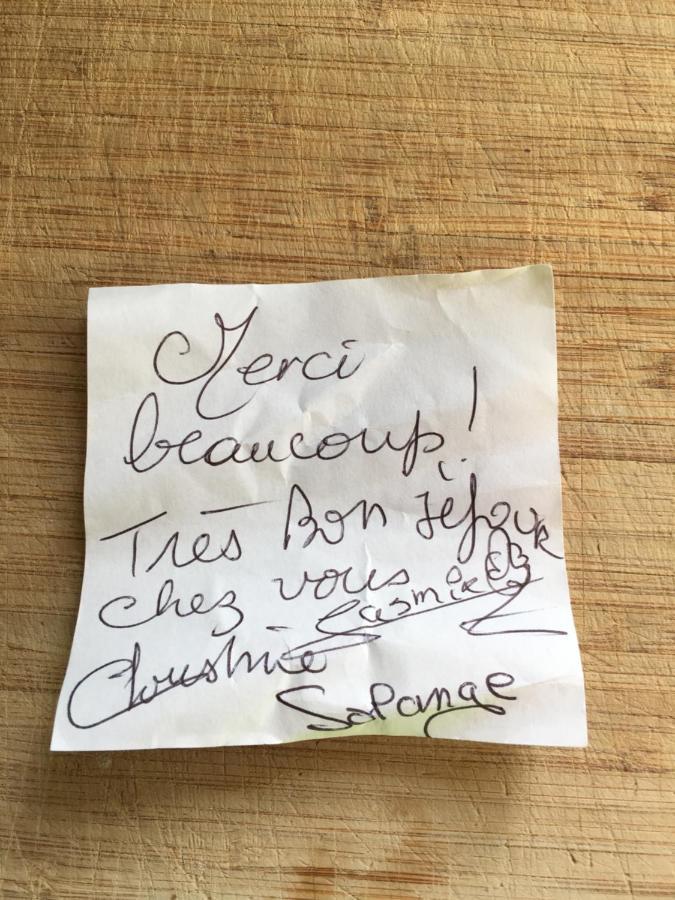 Merci
beaucoup!
Très Bon séjour
chez vous
Christine
Solange